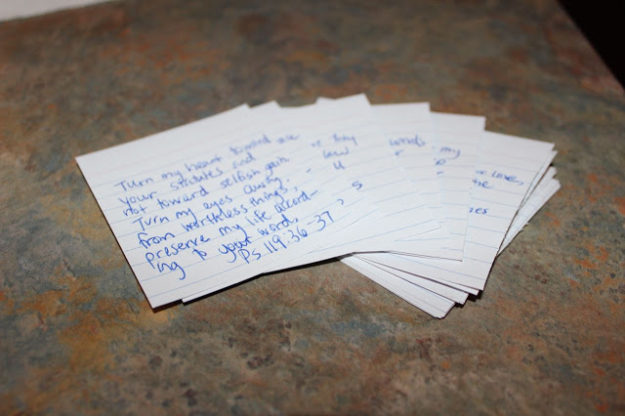 Turn my heart toward
your statutes and
not toward selfish gain.
Turn my eyes away
from worthless things;
preserve my life accord-
ing to your word.
Ps 119:36-37
law
words
my
love,
the